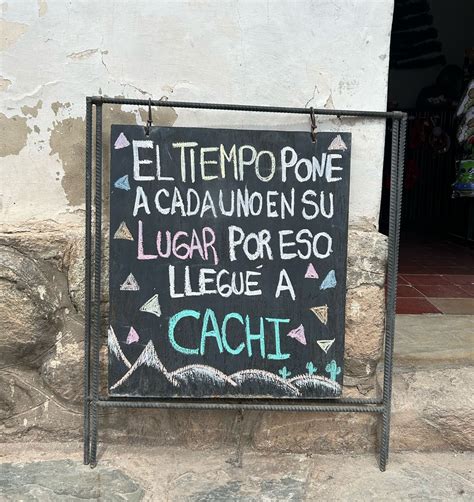 EL TIEMPO PONE
A CADA UNO EN SU
LUGAR POR ESO
LLEGUÉ A
CACHI